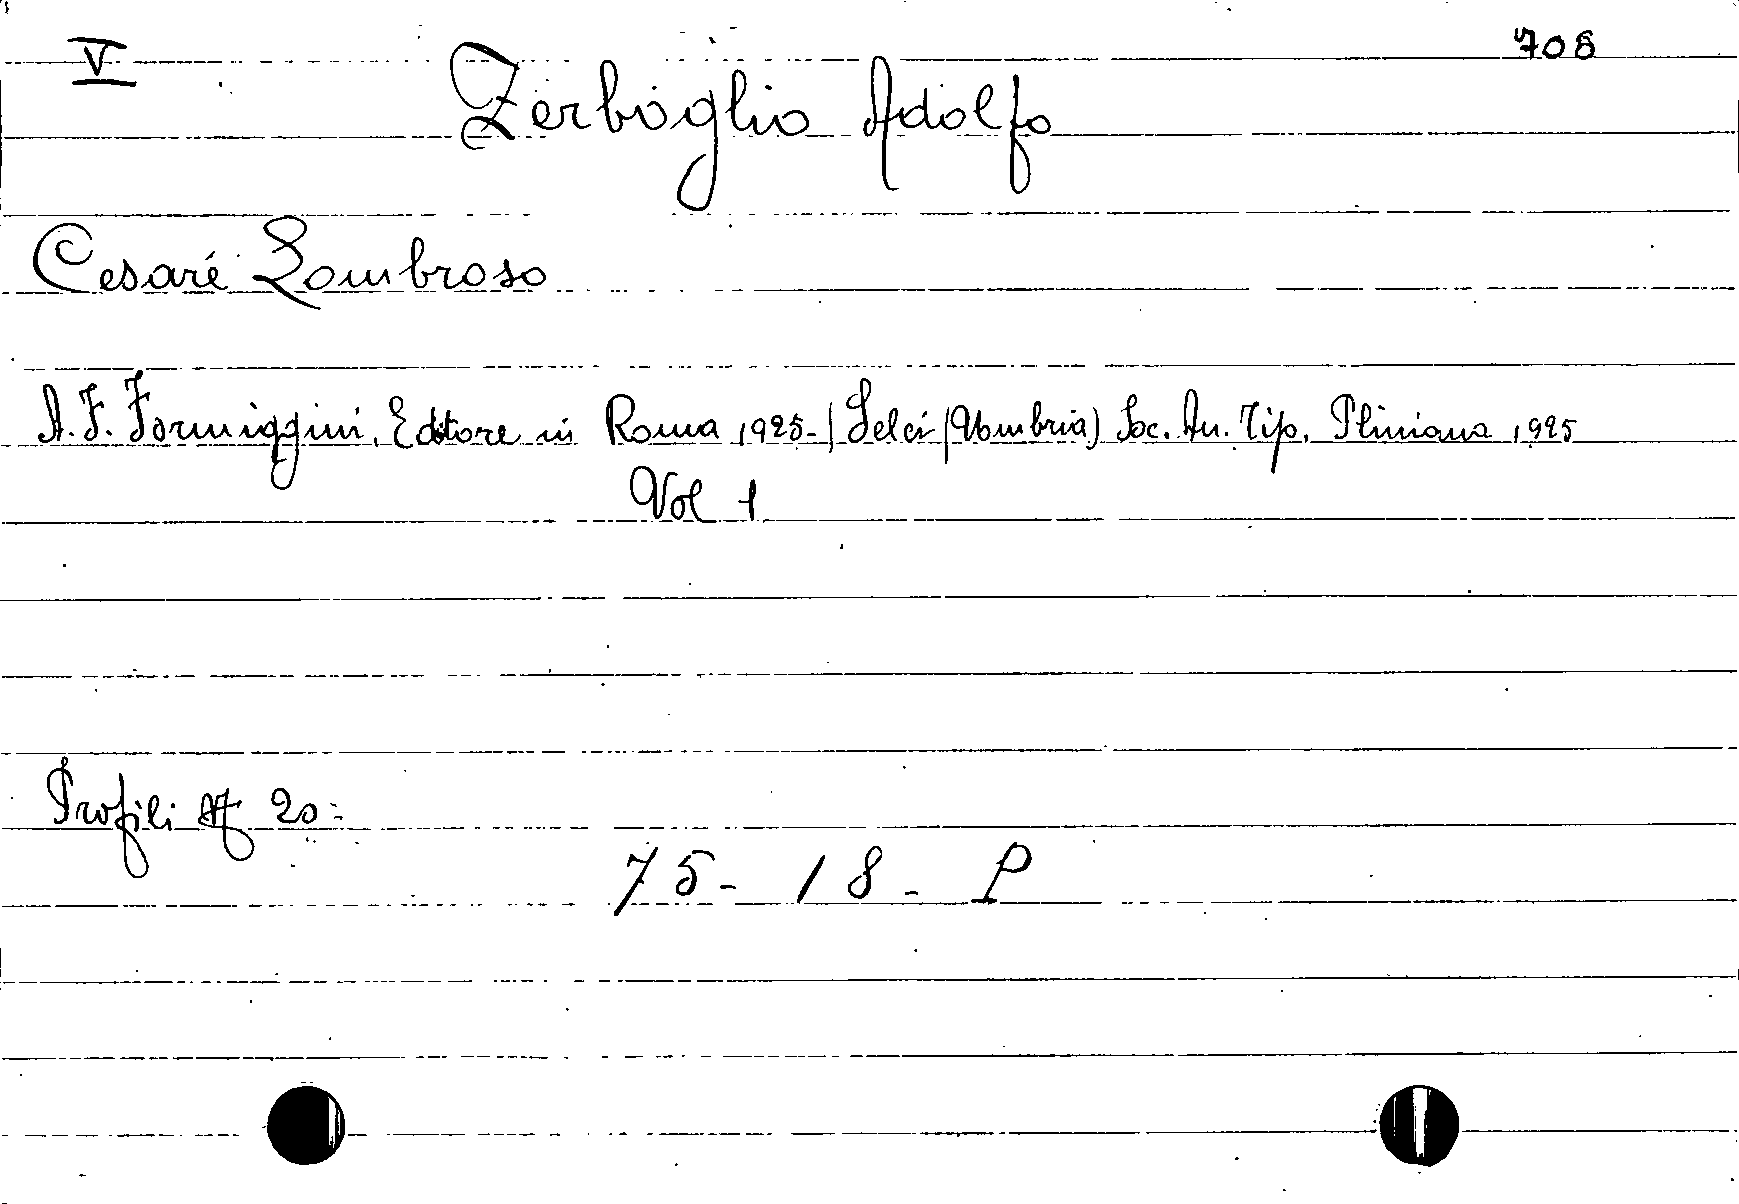 V
Zerboglio Adolfo
708
Cesare Lombroso
A. F. Formiggini. Editore in Roma 1925-(Selci (Umbria) Soc. An. Tip. Pliniana 1925
Vol 1
Profili 20-
75- 18- P